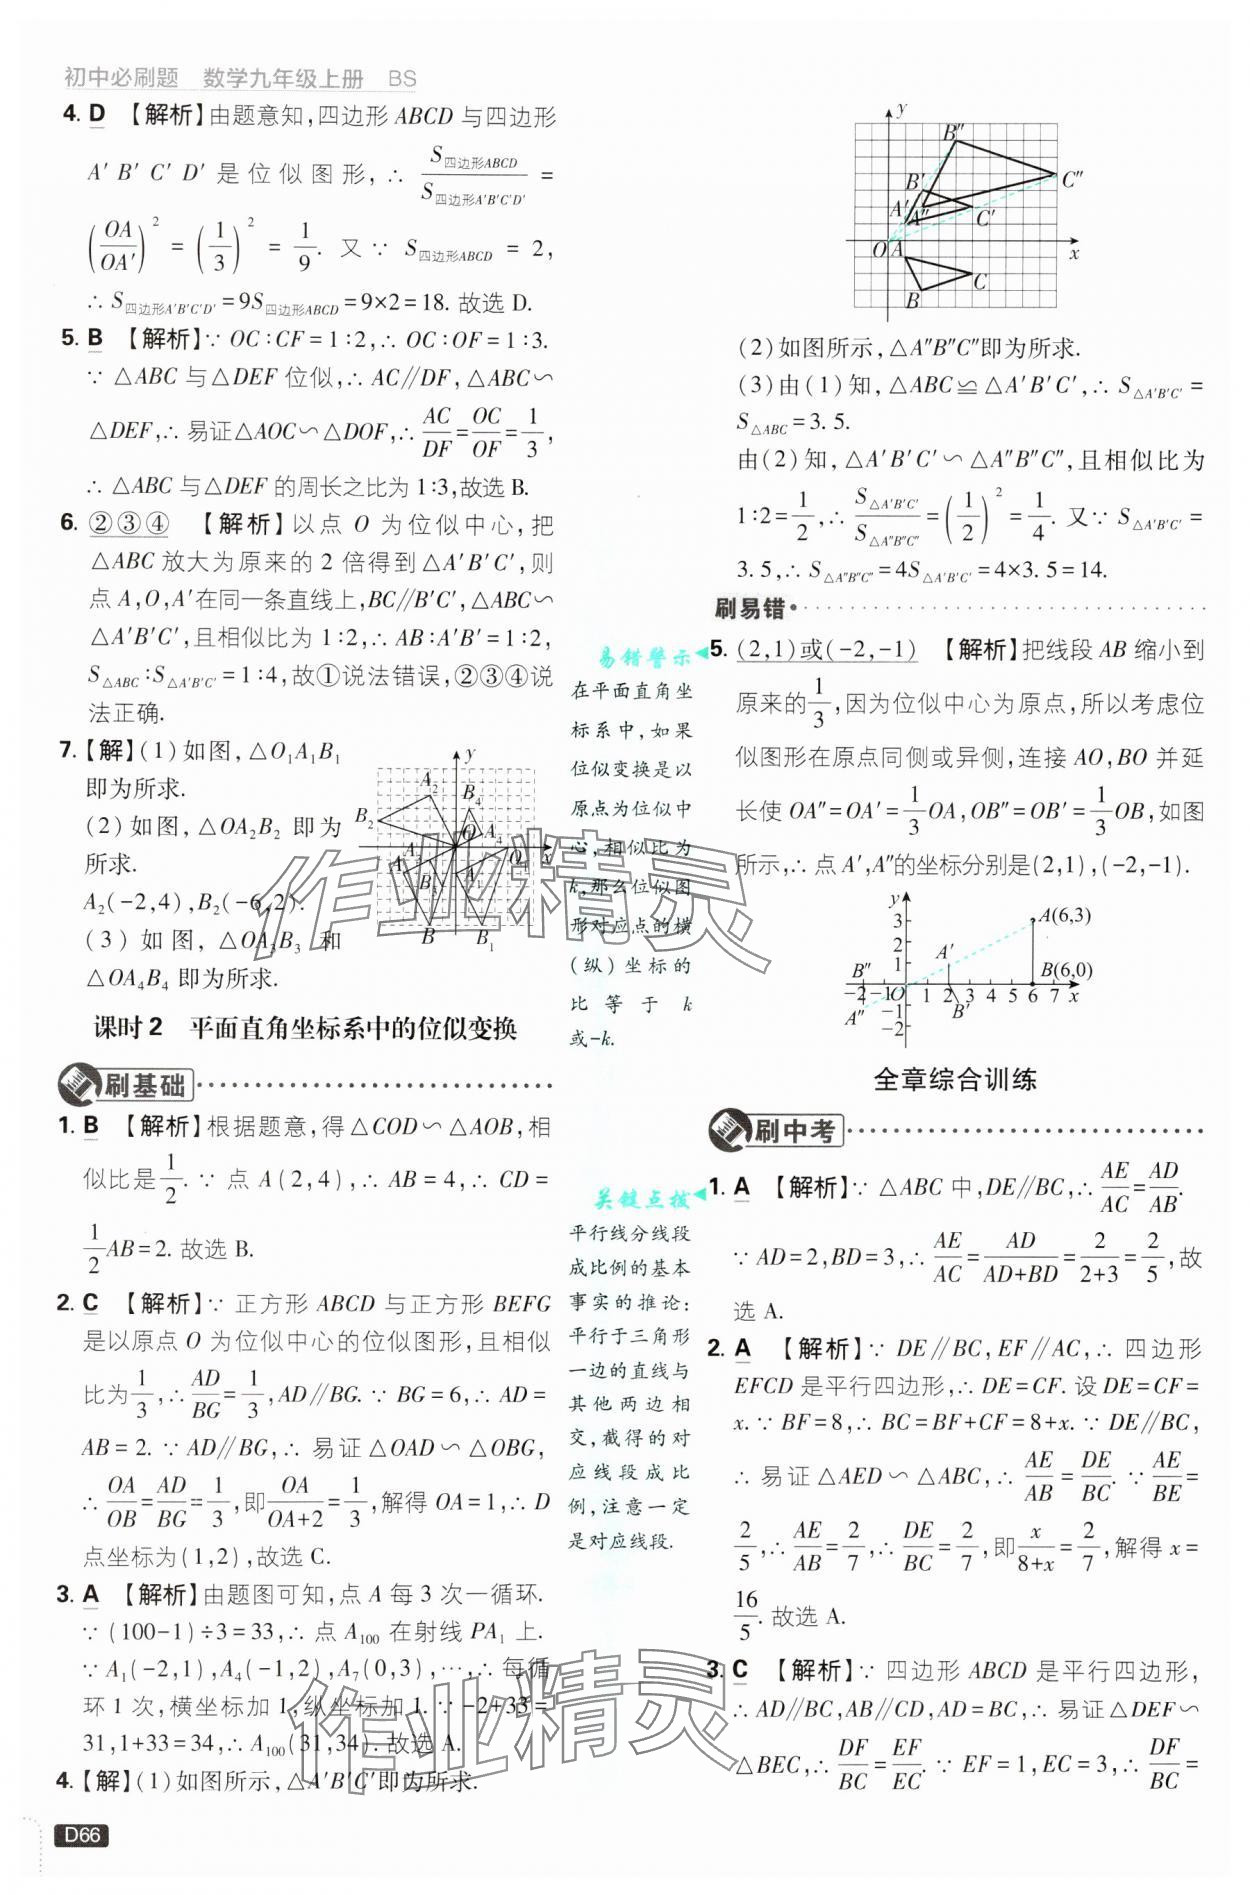 初中必刷题 数学九年级上册 BS
4. D 【解析】由题意知,四边形 ABCD 与四边形
A′B′C′D′是位似图形,∴ S四边形ABCD/S四边形A′B′C′D′ =
(OA/OA′)² = (1/3)² = 1/9. 又∵ S四边形ABCD = 2,
∴ S四边形A′B′C′D′=9S四边形ABCD=9×2=18. 故选 D.
5. B 【解析】∵ OC∶CF=1∶2,∴ OC∶OF=1∶3.
∵ △ABC 与△DEF 位似,∴ AC∥DF,△ABC∽
△DEF,∴ 易证△AOC∽△DOF,∴ AC/DF=OC/OF=1/3,
∴ △ABC 与△DEF 的周长之比为 1∶3,故选 B.
6. ②③④ 【解析】以点 O 为位似中心,把
△ABC 放大为原来的 2 倍得到△A′B′C′,则
点 A,O,A′在同一条直线上,BC∥B′C′,△ABC∽
△A′B′C′,且相似比为 1∶2,∴ AB∶A′B′=1∶2,
S△ABC∶S△A′B′C′=1∶4,故①说法错误,②③④说
法正确.
7. 【解】(1)如图,△O₁A₁B₁
即为所求.
(2)如图,△OA₂B₂ 即为
所求.
A₂(-2,4),B₂(-6,2).
(3)如图,△OA₃B₃ 和
△OA₄B₄ 即为所求.
y
A₂
B₄
B₂
O
A₄
O₁
x
A
A₃
B₃
A₁
B
B₁
课时 2 平面直角坐标系中的位似变换
刷基础
1. B 【解析】根据题意,得△COD∽△AOB,相
似比是1/2. ∵ 点 A(2,4),∴ AB=4,∴ CD=
1/2AB=2. 故选 B.
2. C 【解析】∵ 正方形 ABCD 与正方形 BEFG
是以原点 O 为位似中心的位似图形,且相似
比为1/3,∴ AD/BG=1/3,AD∥BG. ∵ BG=6,∴ AD=
AB=2. ∵ AD∥BG,∴ 易证△OAD∽△OBG,
∴ OA/OB=AD/BG=1/3,即OA/(OA+2)=1/3,解得 OA=1,∴ D
点坐标为(1,2),故选 C.
3. A 【解析】由题图可知,点 A 每 3 次一循环.
∵ (100-1)÷3=33,∴ 点 A₁₀₀ 在射线 PA₁ 上.
∵ A₁(-2,1),A₄(-1,2),A₇(0,3),…,∴ 每循
环 1 次,横坐标加 1,纵坐标加 1. ∵ -2+33=
31,1+33=34,∴ A₁₀₀(31,34). 故选 A.
4. 【解】(1)如图所示,△A′B′C′即为所求.
D66
易错警示
在平面直角坐
标系中,如果
位似变换是以
原点为位似中
心,相似比为
k,那么位似图
形对应点的横
(纵)坐标的
比等于 k
或-k.
关键点拨
平行线分线段
成比例的基本
事实的推论:
平行于三角形
一边的直线与
其他两边相
交,截得的对
应线段成比
例,注意一定
是对应线段.
y
B″
C″
B′
A′
A″
C′
O
A
x
C
B
(2)如图所示,△A″B″C″即为所求.
(3)由(1)知,△ABC≌△A′B′C′,∴ S△A′B′C′=
S△ABC=3.5.
由(2)知,△A′B′C′∽△A″B″C″,且相似比为
1∶2=1/2,∴ S△A′B′C′/S△A″B″C″=(1/2)²=1/4. 又∵ S△A′B′C′=
3.5,∴ S△A″B″C″=4S△A′B′C′=4×3.5=14.
刷易错
5. (2,1)或(-2,-1) 【解析】把线段 AB 缩小到
原来的1/3,因为位似中心为原点,所以考虑位
似图形在原点同侧或异侧,连接 AO,BO 并延
长使 OA″=OA′=1/3OA,OB″=OB′=1/3OB,如图
所示,∴ 点 A′,A″的坐标分别是(2,1),(-2,-1).
y
3
2
1
A(6,3)
A′
B″
B(6,0)
-2 -1 O 1 2 3 4 5 6 7 x
A″
-1
B′
-2
全章综合训练
刷中考
1. A 【解析】∵ △ABC 中,DE∥BC,∴ AE/AC=AD/AB.
∵ AD=2,BD=3,∴ AE/AC=AD/(AD+BD)=2/(2+3)=2/5,故
选 A.
2. A 【解析】∵ DE∥BC,EF∥AC,∴ 四边形
EFCD 是平行四边形,∴ DE=CF. 设 DE=CF=
x. ∵ BF=8,∴ BC=BF+CF=8+x. ∵ DE∥BC,
∴ 易证△AED∽△ABC,∴ AE/AB=DE/BC. ∵ AE/BE=
2/5,∴ AE/AB=2/7,∴ DE/BC=2/7,即x/(8+x)=2/7,解得 x=
16/5. 故选 A.
3. C 【解析】∵ 四边形 ABCD 是平行四边形,
∴ AD∥BC,AB∥CD,AD=BC,∴ 易证△DEF∽
△BEC,∴ DF/BC=EF/EC. ∵ EF=1,EC=3,∴ DF/BC=
作业精灵
作业精灵